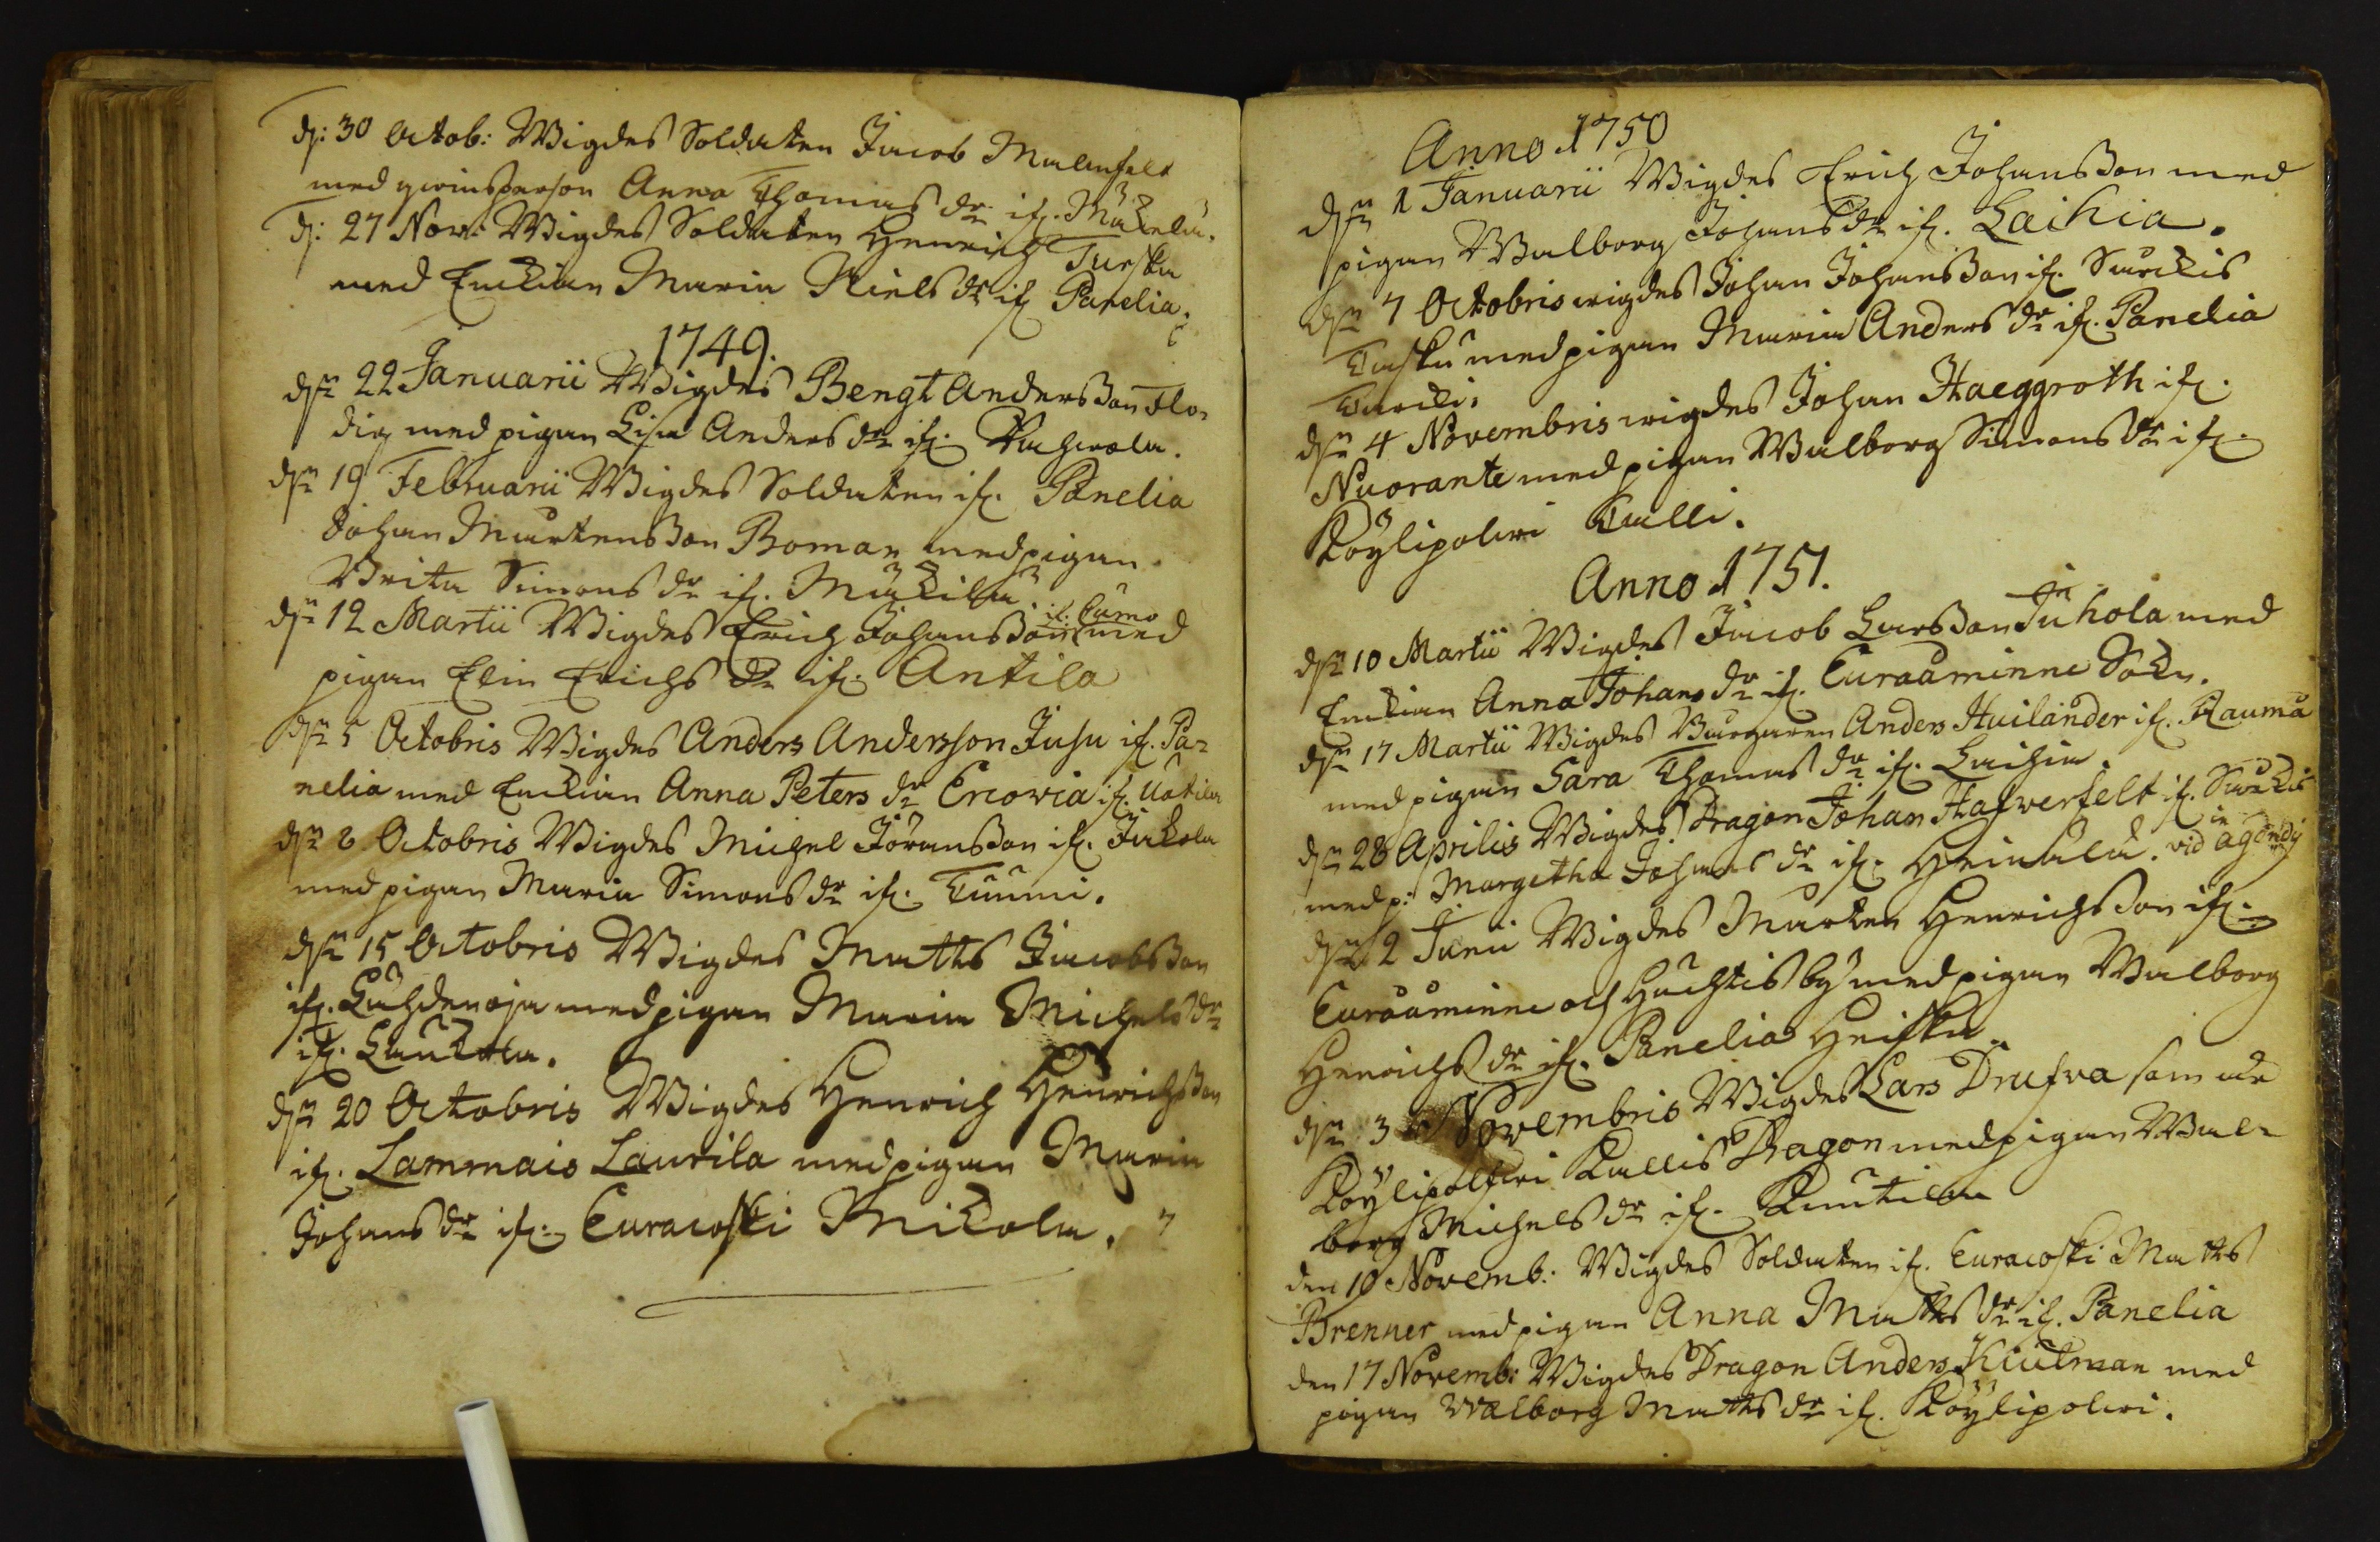 d: 30 Octob: Wigdes Soldaten Jacob Malmfelt
med qwinsperson Anna Thomas dr if. Mäkelä.
d: 27 Nov: Wigdes Soldaten Henrich Turska
med Enckian Maria Niels dr if Panelia.
1749.
dn 22 Januarii Wigdes Bengt Andersson Flo-
din med pigan Lisa Anders dr if.
dn 19 Februarii Wigdes Soldaten if. Panelia
Johan Mårtensson Boman med pigan
Brita Simons dr if. Mäkilä
if. Cumo
dn 12 Martii Wigdes Erich Johansson med
pigan Elin Erichs dr if. Antila
dn 5 Octobris Wigdes Anders Andersson Jusu if. Pa-
nelia med Enckian Anna Peters dr if. Uotila
dn 8 Octobris Wigdes Michel Jöransson if. Jukola
med pigan Maria Simons dr if. Tuumi.
dn 15 Octobris Wigdes Matts Jacobsson
if. Lähdenoja med pigan Maria Michels dr
if. Laukola.
dn 20 Octobris Wigdes Henrich Henrichsson
if. Lammais Laurila med pigan Maria
Johans dr if. Euracoski Mickola. 7
Anno 1750
dn 1 Januarii Wigdes Erich Johansson med
pigan Walborg Johans dr if. Laihia.
dn 7 Octobris wigdes Johan Johansson if. Surckis
Tasku med pigan Maria Anders dr if. Panelia
dn 4 Novembris wigdes Johan Haeggroth if.
Nuorante med pigan Walborg Simons dr if.
Köylipolwi Talli.
Anno 1751.
dn 10 Martii Wigdes Jacob Larsson Juhola med
Enckian Anna Johans dr if. Euraåminne Sokn.
dn 17 Martii Wigdes Borgaren Anders Huilander if. Rauma
med pigan Sara Thomas dr if. Laihia.
dn 28 Aprilis Wigdes Dragon Johan Hafwerfelt if.
med p: Margetha Johans dr if. Heinilä.
dn 2 Junii Wigdes Mårten Henrichsson if.
Euraåminne och Huchtis by med pigan Walborg
Henrichs dr if. Panelia Heiska.
dn 3 Novembris Wigdes Lars Drufva som är
Köylipolfwi Kallis Dragon med pigan Wal-
borg Michels dr if. Knuutila
den 10 Novemb: Wigdes Soldaten if. Euracoski Matts
Brenner med pigan Anna Matts dr if. Panelia
den 17 Novemb: Wigdes Dragon Anders Kiulman med
pigan Walborg Matts dr if. Köylipolwi.